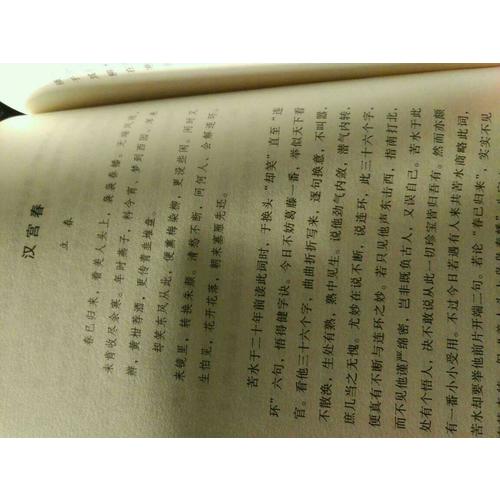 汉宫春
立春
春已归来,看美人头上,袅袅春幡。无端风雨,
未肯收尽余寒。年时燕子,料今宵、梦到西园。浑未
辨,黄柑荐酒,更传青韭堆盘。
却笑东风从此,便熏梅染柳,更没些闲。闲时又
来镜里,转换朱颜。清愁不断,问何人、会解连环。
生怕见,花开花落,朝来塞雁先还。
苦水于二十年前读此词时,于换头“却笑”直至“连
环”六句,悟得健字诀。今日不妨葛藤一番,举似天下看
官。看他三十六个字,曲曲折折写来,逐句换意,不叫嚣,
不散涣,生处有熟,熟中见生。说他劲气内敛,潜气内转,
庶几当之无愧。尤妙在说不断,说连环,此三十六个字,
便真有不断与连环之妙。若只见他声东击西,指南打北,
而不见他谨严绵密,岂非既负古人,又误自己。苦水于此
处有个悟人,决不敢说从此一切珍宝皆归吾有。然而亦颇
有一番小小受用。不过今日若遇有人来共苦水商略此词,
苦水却要举他前片开端二句。若论“春已归来”,实实不见